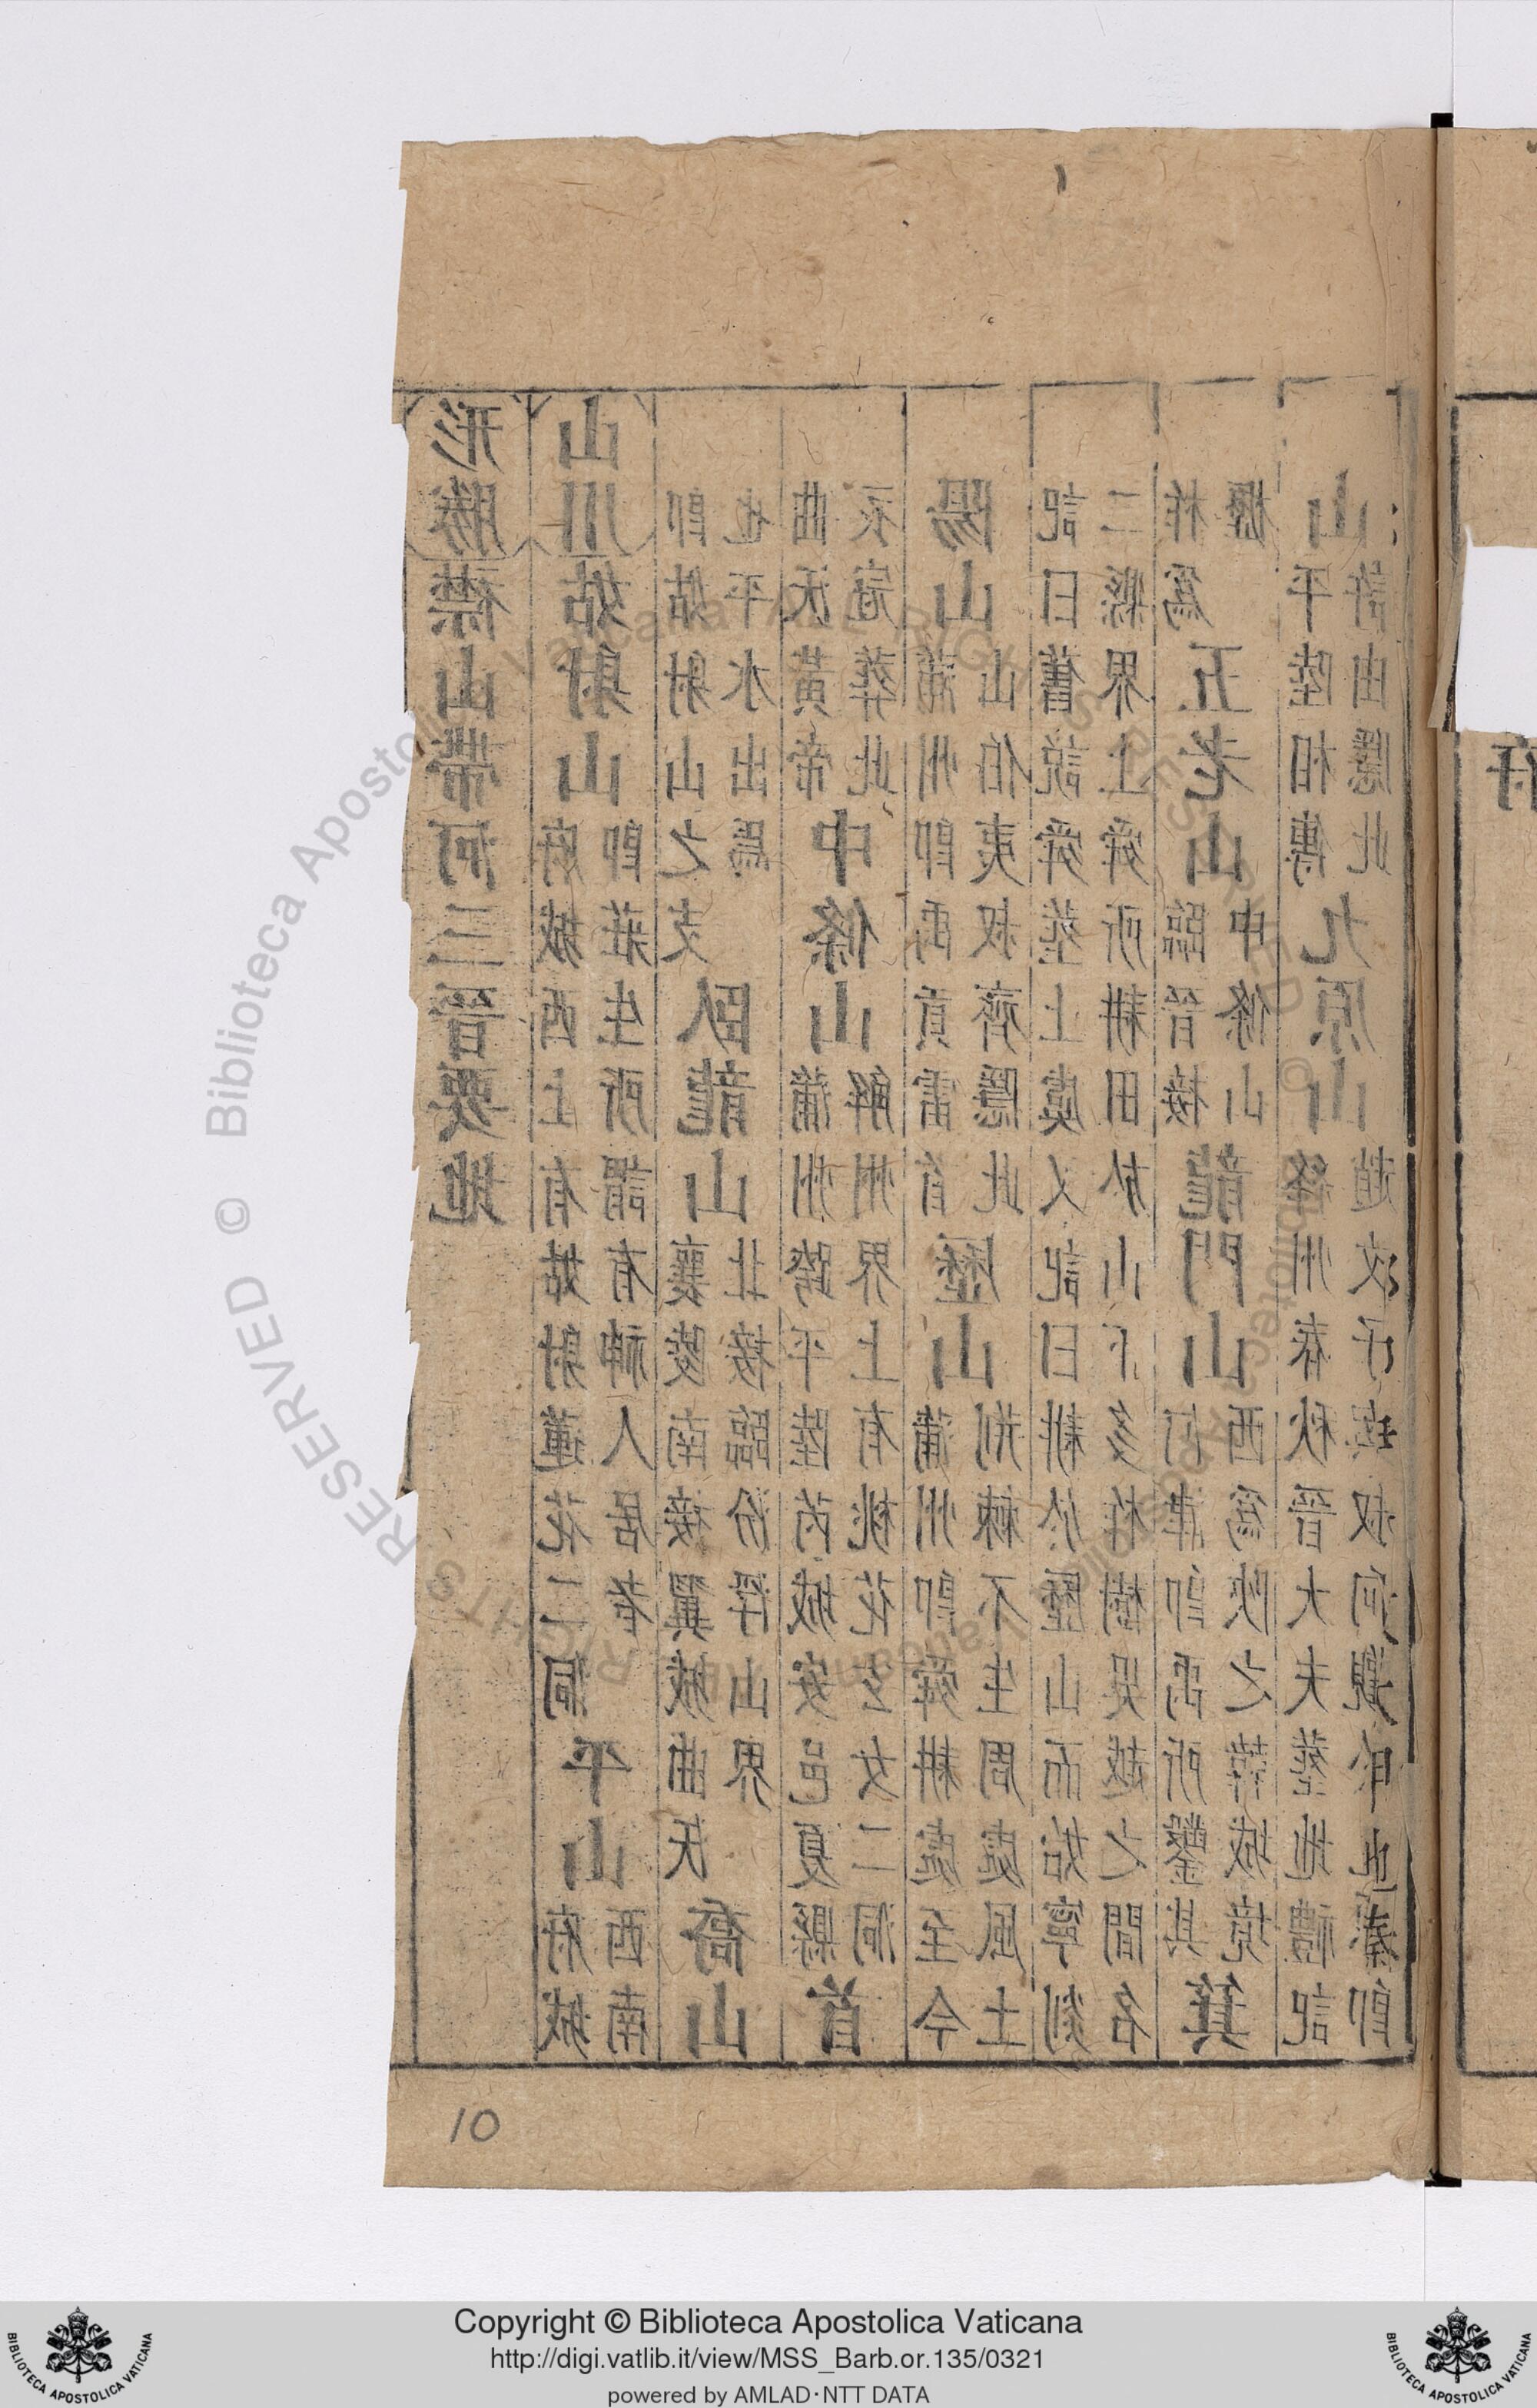 形勝襟山帶河三晉要地
山川姑射山府城西上有姑射蓮花二洞即莊生所謂有神人居者平山府城西南
即姑射山之支也平水出焉臥龍山襄陵南接翼城曲沃北接臨汾浮山界喬山
曲沃黃帝衣冠葬此中條山蒲州跨平陸芮城安邑夏縣解州界上有桃花玄女二洞首
陽山蒲州即禹貢雷首山伯夷叔齊隱此歷山蒲州即舜耕處至今荊棘不生周處風土
記曰舊說舜葬上虞又記曰耕於歷山而始寧剡二縣界上舜所耕田於山下多柞樹吳越之間名
柞為櫪五老山臨晉接中條山龍門山河津即禹所鑿其西為陝之韓城境箕
山平陸相傳許由隱此九原山絳州春秋晉大夫葬地禮記趙文子與叔向觀於即
府
10
Copyright © Biblioteca Apostolica Vaticana
http://digi.vatlib.it/view/MSS_Barb.or.135/0321
powered by AMLAD·NTT DATA